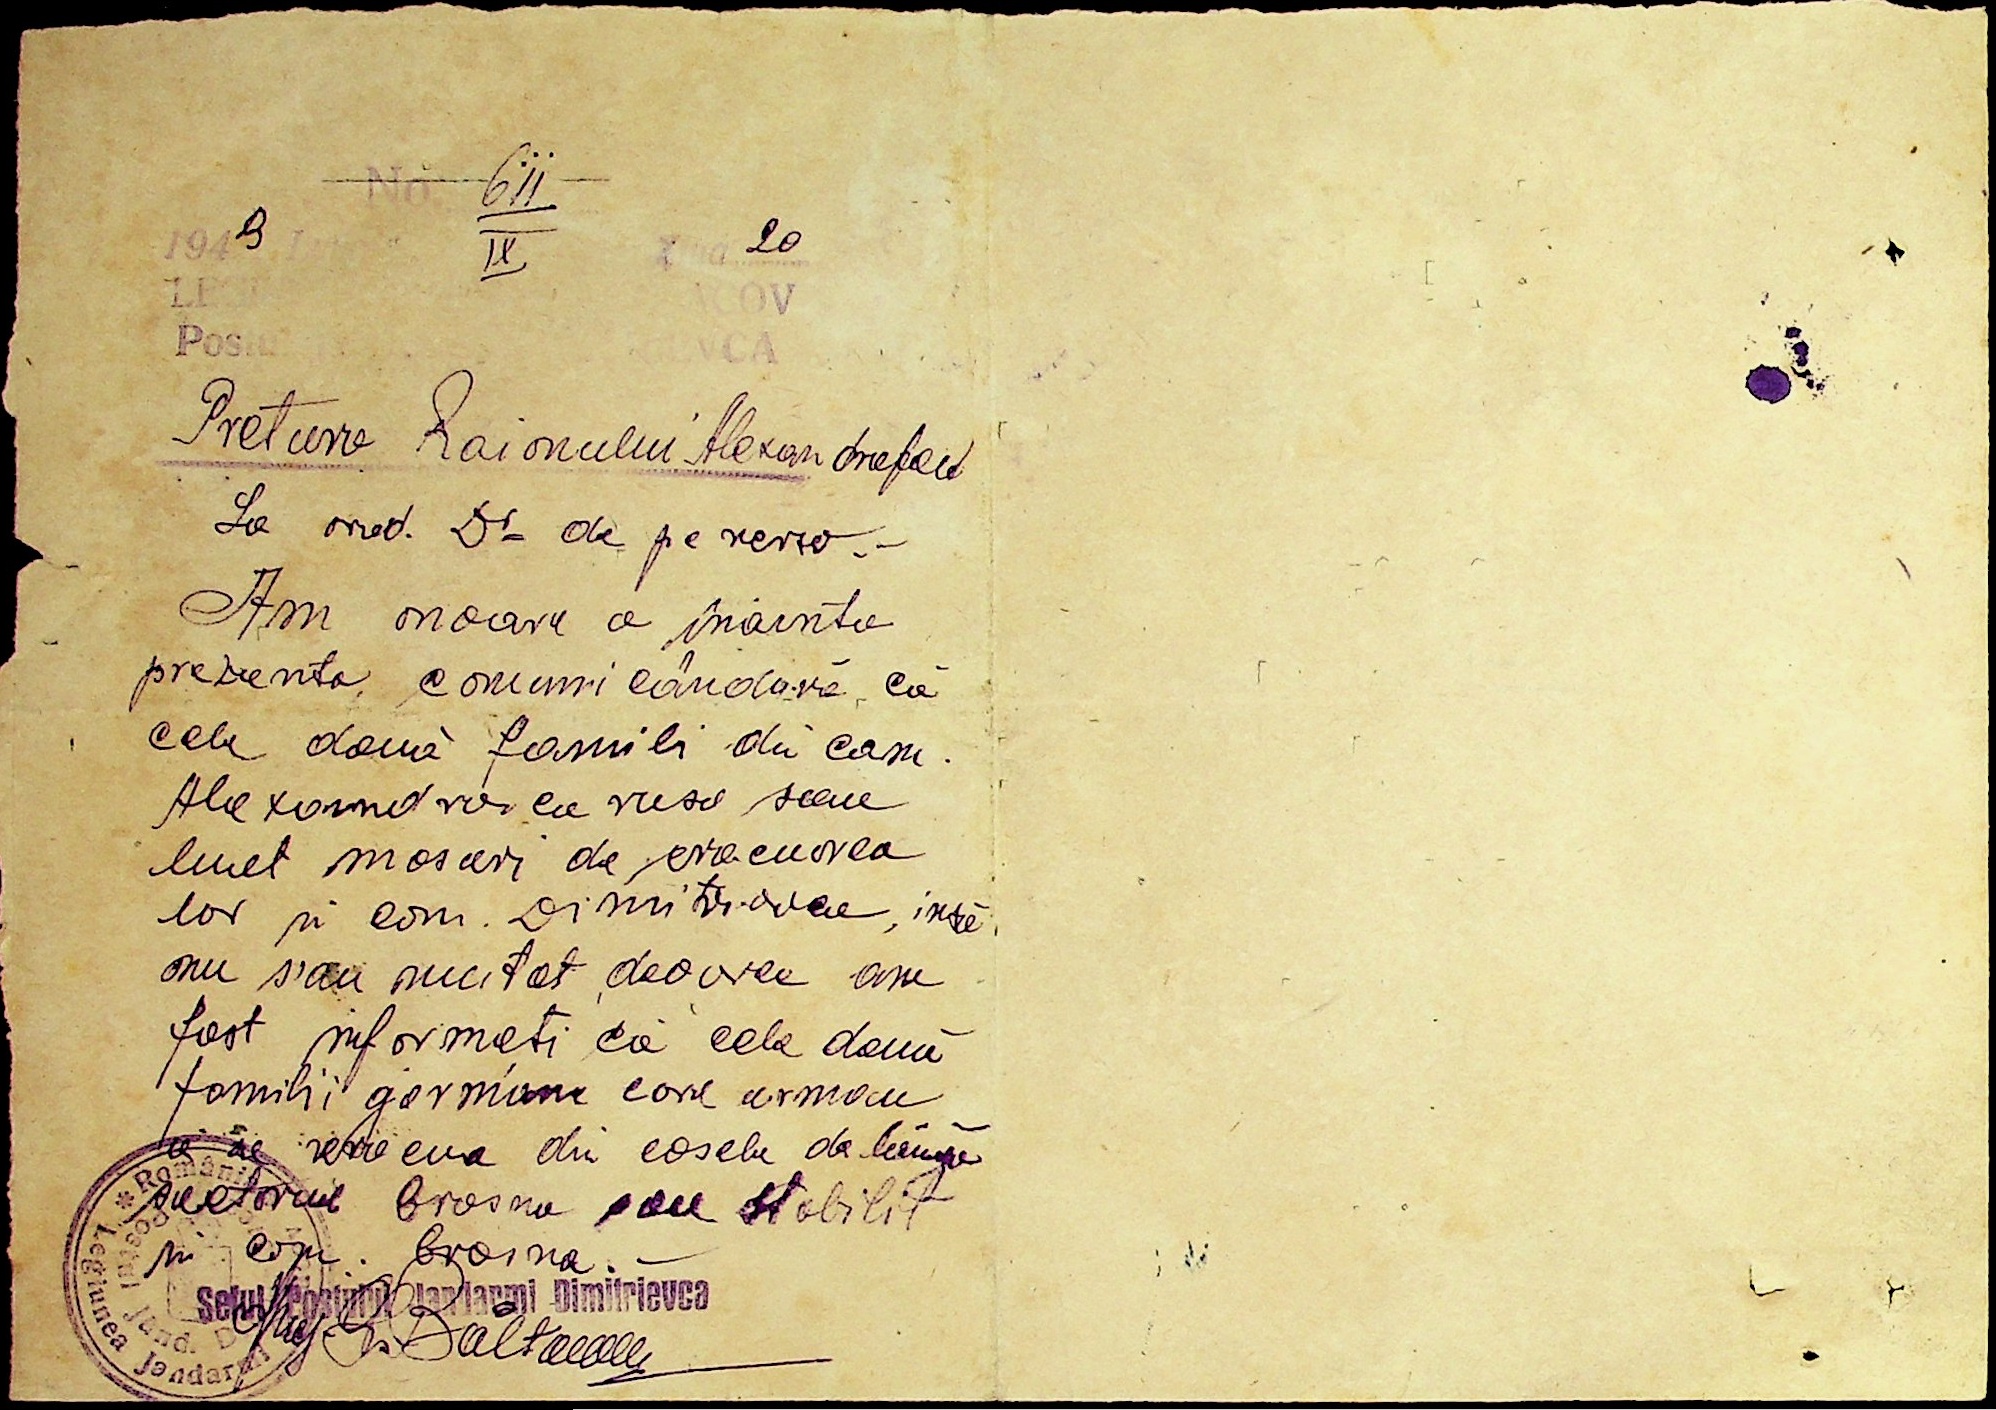 No. 611
IX
1943 20
COV
Pos VCA
Pretura Raionului Alexandrafeld
La ord. Dv de pe verso.-
Am onoare a înainta
prezenta, comunicânduvă că
cele două famili din com.
Alexandrovca rusă sau
luat masuri de evacuarea
lor în com. Dimitrovca, însă
nu s'au mutat deoarece am
fost informati că cele două
familii germane care urmau
a se evacua din casele de lângă
Crasna sau stabilit
în com. Crasna.-
Seful Postului Jandarmi Dimitrievca
România
Legiunea Jandarmi
Postul Jand. D